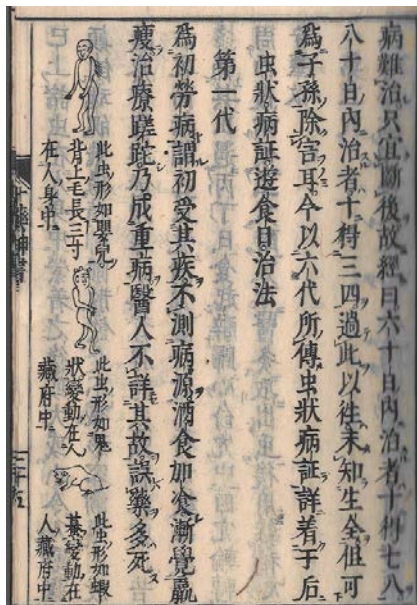 病難治只宜斷後故經曰六十日內治者十得七八
八十日內治者十得三四過此以往未知生全但可
為子孫除害耳今以六代所傳虫狀病証詳着于后
虫狀病証遊食日治法
第一代
為初勞病謂初受其疾不測病源酒食加飡漸覺羸
瘦治療蹉跎乃成重病醫人不詳其故誤藥多死
此虫形如嬰兒
背上毛長三寸
在人身中
此虫形如鬼
狀變動在人
藏府中
此虫形如蝦
蟇變動在
人藏府中